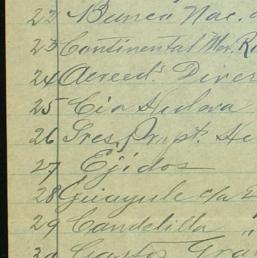 22 Banco Nac. d
23 Continental Mex. Ru
24 Acreeds. Diver
25 Cia Hulera
26 Sres. Propt. He
27 Ejidos
28 Guayule c/a E
29 Candelilla "
30 Gastos Gra